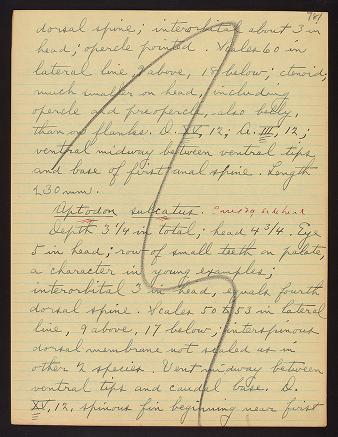 dorsal spine; interorbital about 3 in
head; opercle pointed. Scales 60 in
lateral line, 9 above, 18 below; ctenoid;
much smaller on head, including
opercle and preopercle, also belly,
than on flanks. D. XV, 12; A. III, 12;
ventral midway between ventral tips
and base of first anal spine. Length
230 mm.
Aptodon sulcatus.
Depth 3 1/4 in total; head 4 3/4. Eye
5 in head; row of small teeth on palate,
a character in young examples;
interorbital 3 in head, equals fourth
dorsal spine. Scales 50 to 53 in lateral
line, 9 above, 17 below; interspinous
dorsal membrane not scaled as in
other 2 species. Vent midway between
ventral tips and caudal base. D.
XV, 12, spinous fin beginning near first